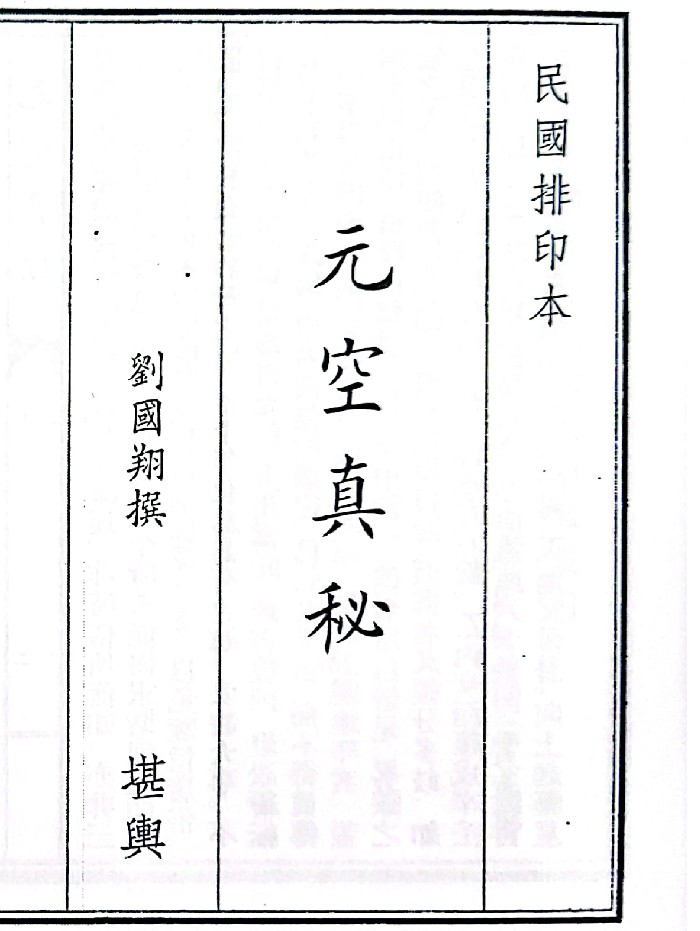 民國排印本
元空真秘
劉國翔撰
堪輿